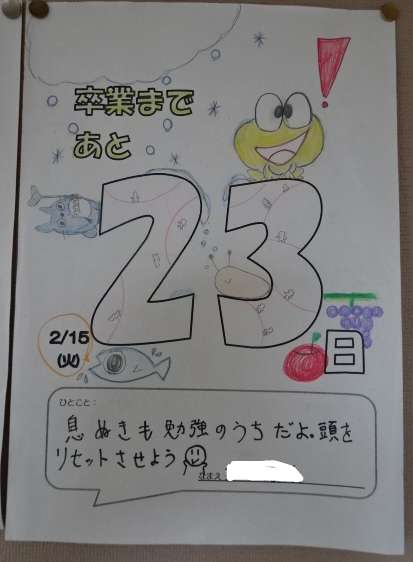 卒業まで
あと
23
日
2/15
(火)
ひとこと：
息ぬきも勉強のうちだよ。頭を
リセットさせよう
なまえ：